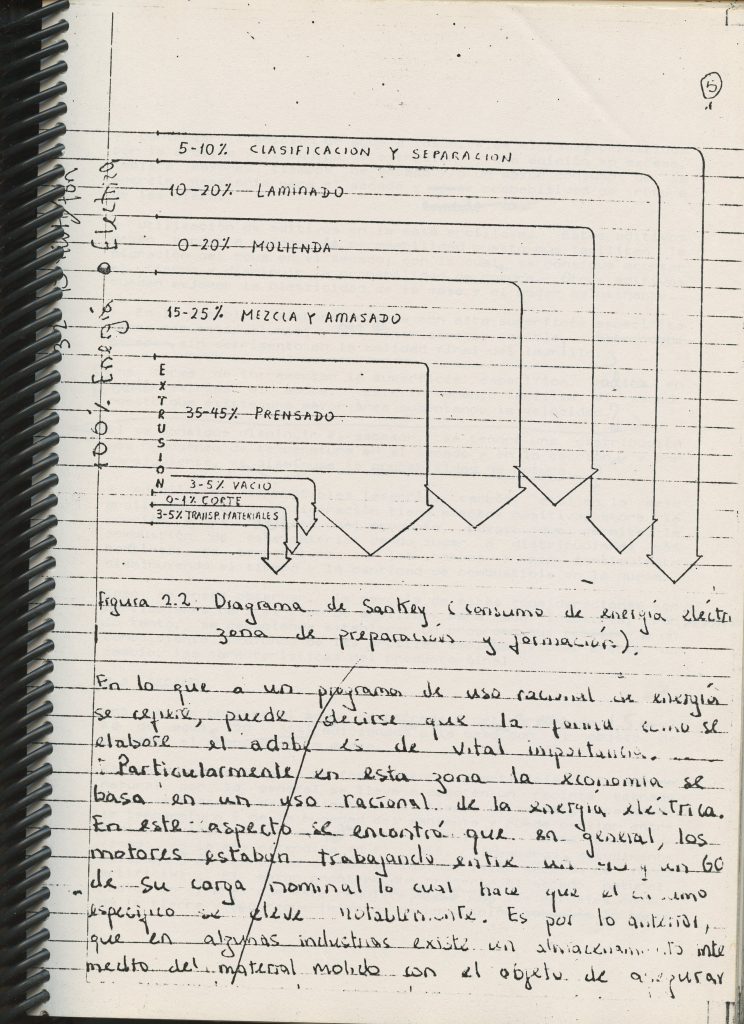 5
5-10% CLASIFICACION Y SEPARACION
10-20% LAMINADO
0-20% MOLIENDA
15-25% MEZCLA Y AMASADO
EXTRUSION
35-45% PRENSADO
3-5% VACIO
0-1% CORTE
3-5% TRANSP. MATERIALES
100% Energía Eléctrica
Figura 2.2. Diagrama de Sankey (consumo de energía eléctri
zona de preparación y formación).
En lo que a un programa de uso racional de energía
se refiere, puede decirse que la forma como se
elabore el adobe es de vital importancia.
Particularmente en esta zona la economía se
basa en un uso racional de la energía eléctrica.
En este aspecto se encontró que en general, los
motores estaban trabajando entre un y un 60
de su carga nominal lo cual hace que el
especifico se eleve notablemente. Es por lo anterior,
que en algunas industrias existe un almacenamiento inte
medio del material molido con el objeto de asegurar